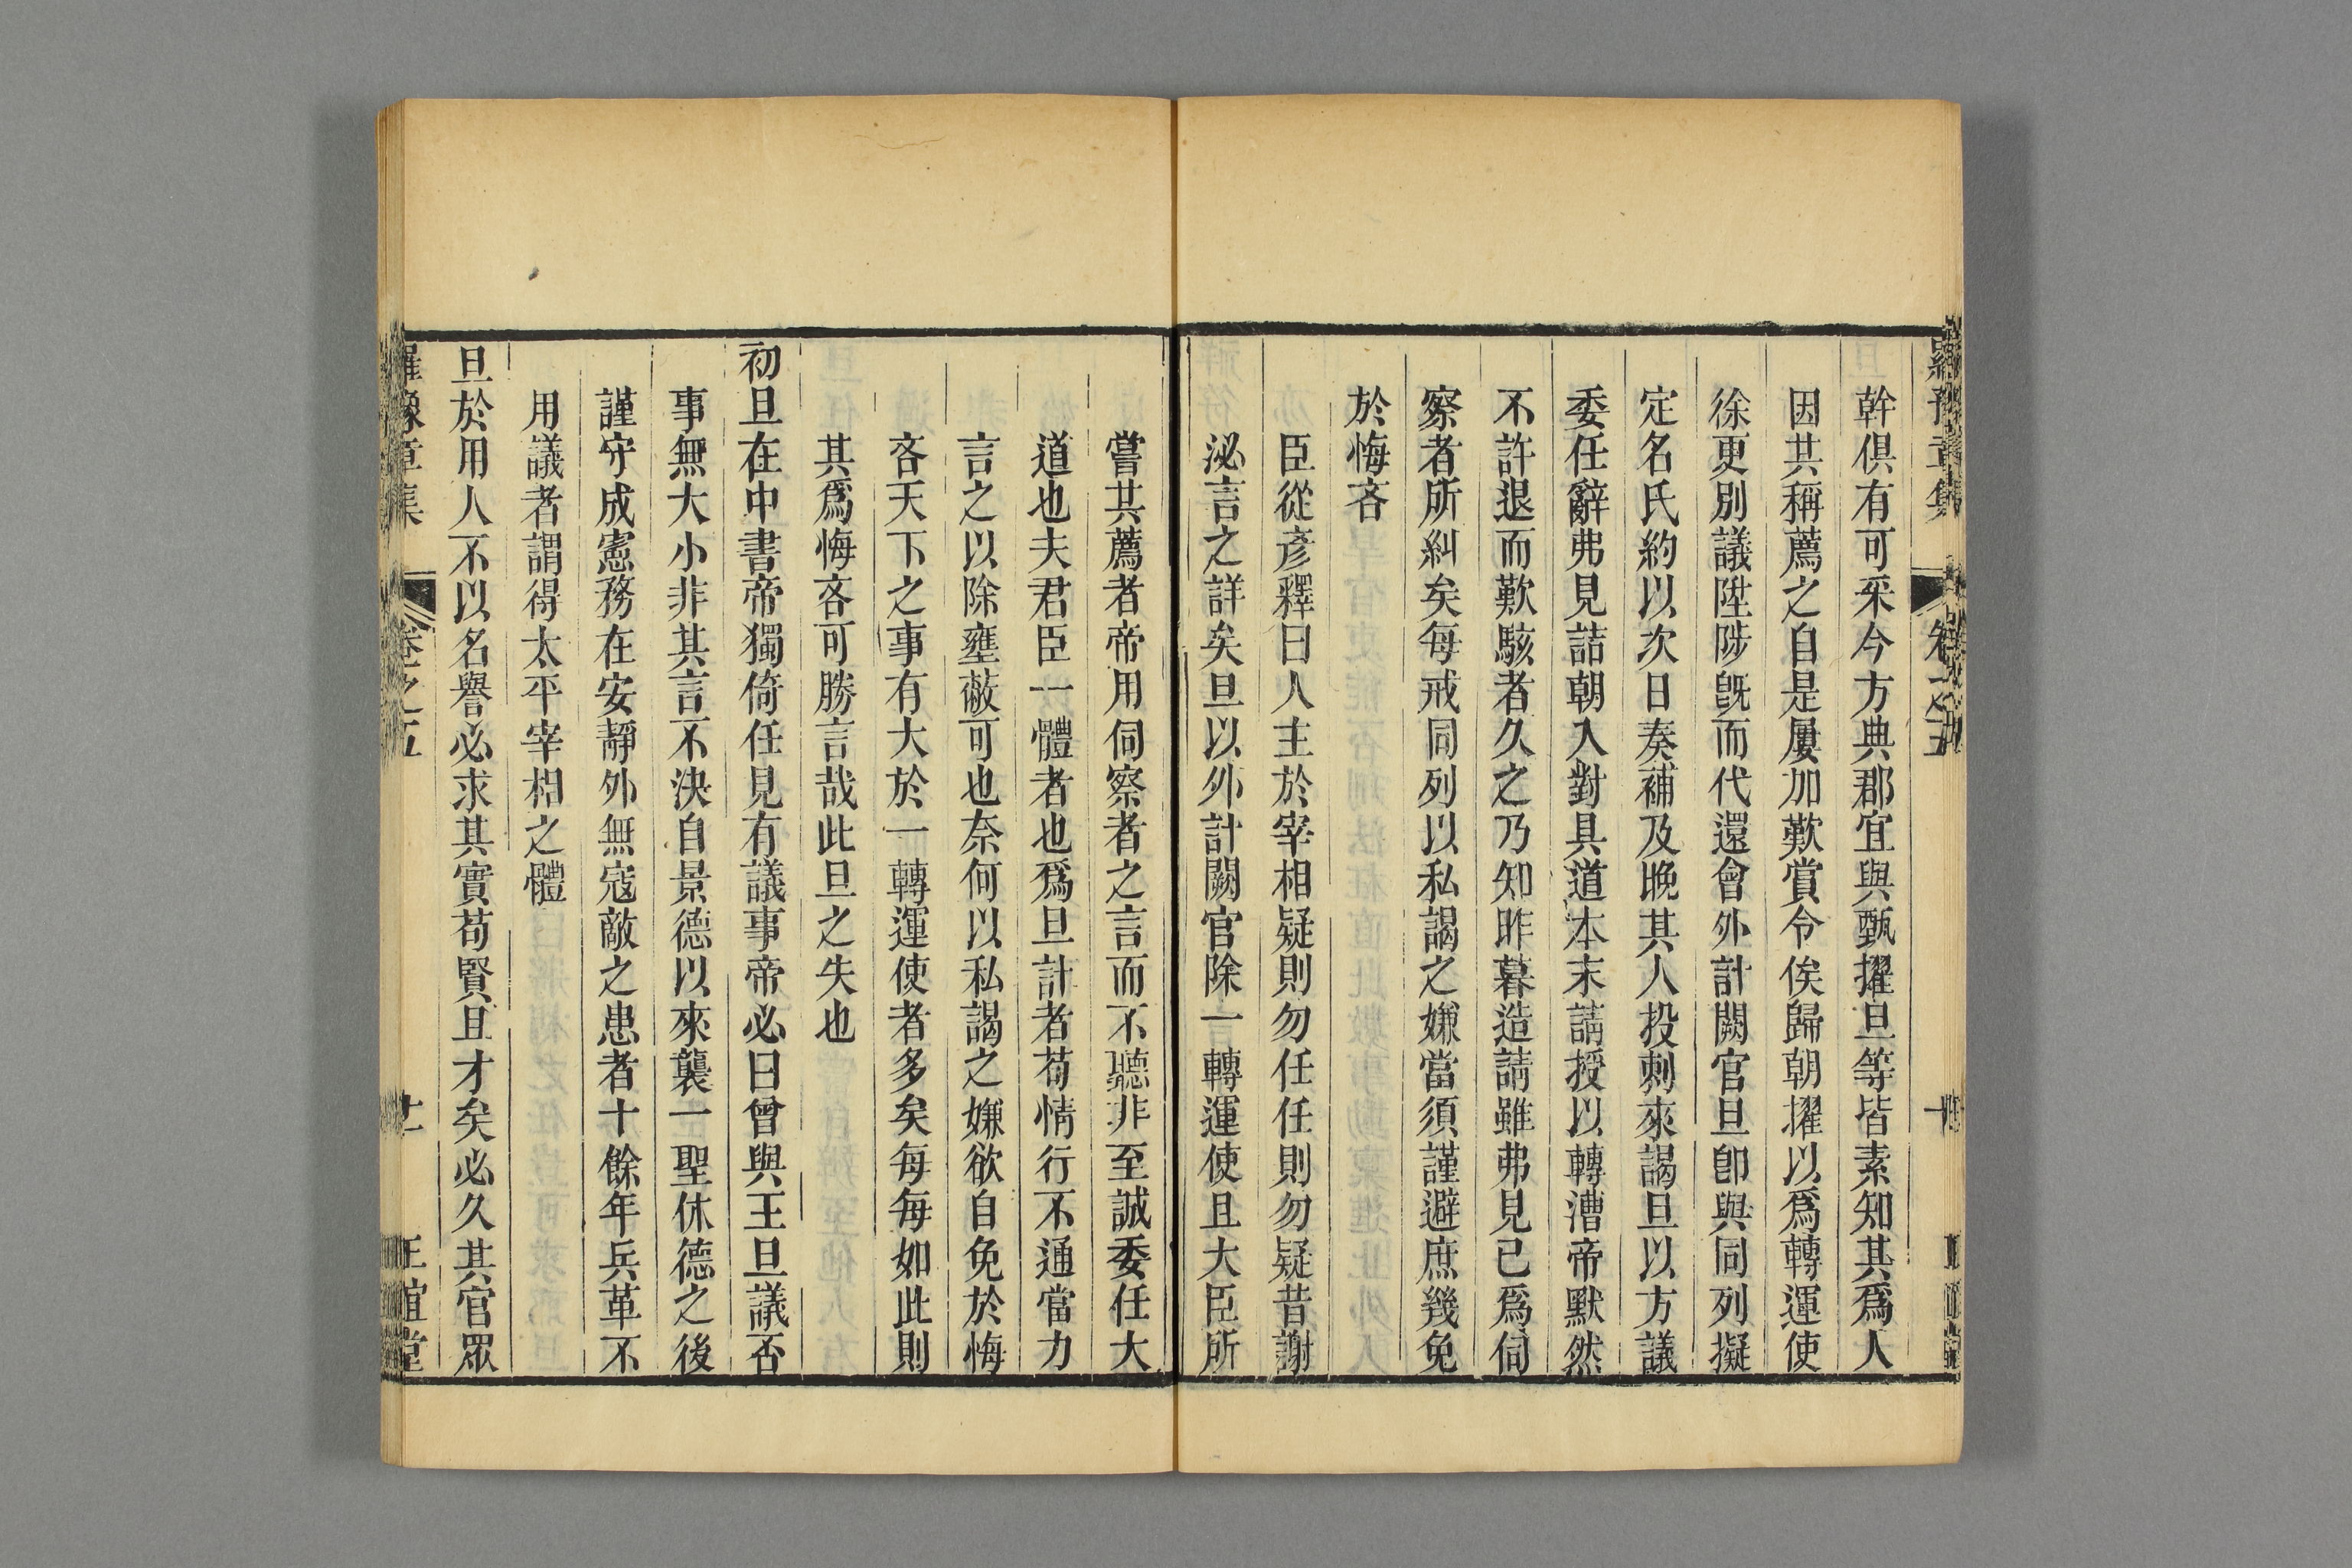 幹俱有可采今方典郡宜與甄擢旦等皆素知其爲人
因其稱薦之自是屢加歎賞令俟歸朝擢以爲轉運使
徐更別議陞陟旣而代還會外計闕官旦卽與同列擬
定名氏約以次日奏補及晚其人投刺來謁旦以方議
委任辭弗見詰朝入對具道本末請授以轉漕帝默然
不許退而歎駭者久之乃知昨暮造請雖弗見已爲伺
察者所糾矣每戒同列以私謁之嫌當須謹避庶幾免
於悔吝
臣從彥釋曰人主於宰相疑則勿任任則勿疑昔謝
泌言之詳矣旦以外計闕官除一轉運使且大臣所
嘗其薦者帝用伺察者之言而不聽非至誠委任大
道也夫君臣一體者也爲旦計者苟情行不通當力
言之以除壅蔽可也奈何以私謁之嫌欲自免於悔
吝天下之事有大於一轉運使者多矣每每如此則
其爲悔吝可勝言哉此旦之失也
初旦在中書帝獨倚任見有議事帝必曰曾與王旦議否
事無大小非其言不決自景德以來襲一聖休德之後
謹守成憲務在安靜外無寇敵之患者十餘年兵革不
用議者謂得太平宰相之體
旦於用人不以名譽必求其實苟賢且才矣必久其官眾
羅豫章集
卷之五
十一
正誼堂